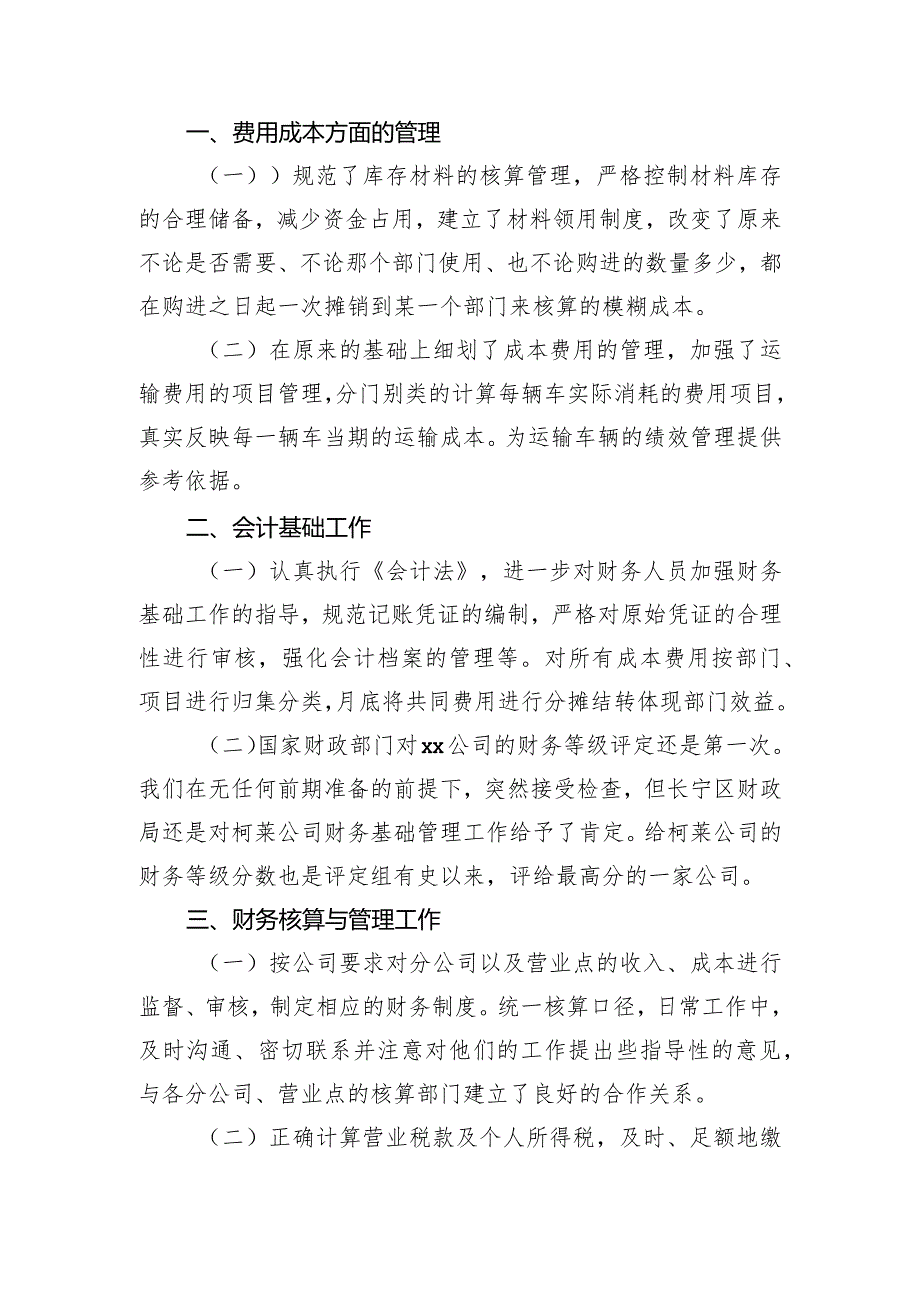 一、费用成本方面的管理
（一））规范了库存材料的核算管理，严格控制材料库存
的合理储备，减少资金占用，建立了材料领用制度，改变了原来
不论是否需要、不论那个部门使用、也不论购进的数量多少，都
在购进之日起一次摊销到某一个部门来核算的模糊成本。
（二）在原来的基础上细划了成本费用的管理，加强了运
输费用的项目管理，分门别类的计算每辆车实际消耗的费用项目，
真实反映每一辆车当期的运输成本。为运输车辆的绩效管理提供
参考依据。
二、会计基础工作
（一）认真执行《会计法》，进一步对财务人员加强财务
基础工作的指导，规范记账凭证的编制，严格对原始凭证的合理
性进行审核，强化会计档案的管理等。对所有成本费用按部门、
项目进行归集分类，月底将共同费用进行分摊结转体现部门效益。
（二）国家财政部门对xx公司的财务等级评定还是第一次。
我们在无任何前期准备的前提下，突然接受检查，但长宁区财政
局还是对柯莱公司财务基础管理工作给予了肯定。给柯莱公司的
财务等级分数也是评定组有史以来，评给最高分的一家公司。
三、财务核算与管理工作
（一）按公司要求对分公司以及营业点的收入、成本进行
监督、审核，制定相应的财务制度。统一核算口径，日常工作中，
及时沟通、密切联系并注意对他们的工作提出些指导性的意见，
与各分公司、营业点的核算部门建立了良好的合作关系。
（二）正确计算营业税款及个人所得税，及时、足额地缴